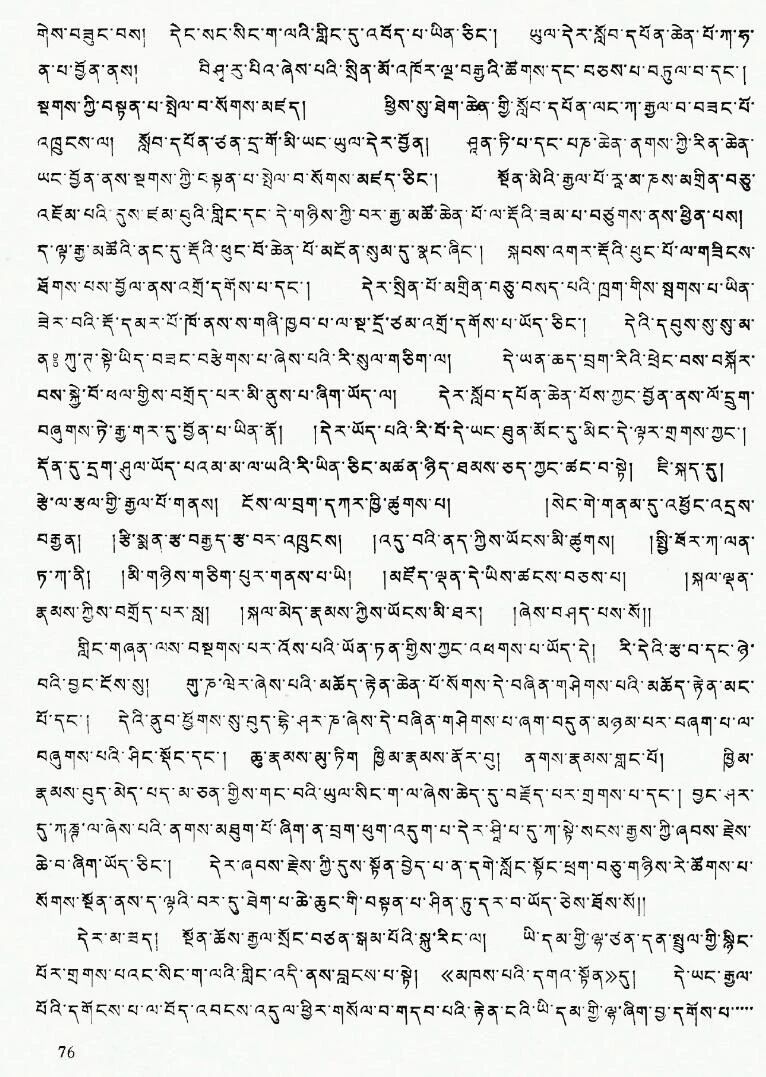 གེས་བཟུང་བས།  དེང་སང་སིང་ག་ལའི་གླིང་དུ་འབོད་པ་ཡིན་ཅིང་།  ཡུལ་དེར་སློབ་དཔོན་ཆེན་པོ་ཀ་ཧ་
ན་པ་བྱོན་ནས།  བི་ཤྭ་རུ་པའི་ཞེས་པའི་སྲིན་མོ་འཁོར་ལྔ་བརྒྱའི་ཚོགས་དང་བཅས་པ་བཏུལ་བ་དང་།
སྔགས་ཀྱི་བསྟན་པ་སྤེལ་བ་སོགས་མཛད།  ཕྱིས་སུ་ཐེག་ཆེན་གྱི་སློབ་དཔོན་ལང་ཀ་རྒྱལ་བ་བཟང་པོ་
འཁྲུངས་ལ།  སློབ་དཔོན་ཙན་དྲ་གོ་མི་ཡང་ཡུལ་དེར་བྱོན།  ཤཱན་ཏི་པ་དང་པཎ་ཆེན་ནགས་ཀྱི་རིན་ཆེན་
ཡང་བྱོན་ནས་སྔགས་ཀྱི་བསྟན་པ་སྤེལ་བ་སོགས་མཛད་ཅིང་།  སྔོན་མིའི་རྒྱལ་པོ་རཱ་མ་ཎས་མགྲིན་བཅུ་
འཇོམ་པའི་དུས་ཛམ་བུའི་གླིང་དང་དེ་གཉིས་ཀྱི་བར་རྒྱ་མཚོ་ཆེན་པོ་ལ་རྡོའི་ཟམ་པ་བཙུགས་ནས་ཕྱིན་པས།
ད་ལྟ་རྒྱ་མཚོའི་ནང་དུ་རྡོའི་ཕུང་པོ་ཆེན་པོ་མངོན་སུམ་དུ་སྣང་ཞིང་།  སྐབས་འགར་རྡོའི་ཕུང་པོ་ལ་གཟིངས་
ཐོགས་པས་བྱོལ་ནས་འགྲོ་དགོས་པ་དང་།  དེར་སྲིན་པོ་མགྲིན་བཅུ་བསད་པའི་ཁྲག་གིས་སྦགས་པ་ཡིན་
ཟེར་བའི་རྡོ་དམར་པོ་ཁོ་ནས་ས་གཞི་ཁྱབ་པ་ལ་སྔ་དྲོ་ཙམ་འགྲོ་དགོས་པ་ཡོད་ཅིང་།  དེའི་དབུས་སུ་སུ་མ་
ན༔ཀུ་ཊ་སྟེ་ཡིད་བཟང་བརྩེགས་པ་ཞེས་པའི་རི་སུལ་གཅིག་ལ།  དེ་ཡན་ཆད་བྲག་རིའི་ཕྲེང་བས་བསྐོར་
བས་སྐྱེ་བོ་ཕལ་གྱིས་བགྲོད་པར་མི་ནུས་པ་ཞིག་ཡོད་ལ།  དེར་སློབ་དཔོན་ཆེན་པོས་ཀྱང་བྱོན་ནས་ལོ་དྲུག་
བཞུགས་ཏེ་རྒྱ་གར་དུ་བྱོན་པ་ཡིན་ནོ།  །དེར་ཡོད་པའི་རི་བོ་དེ་ཡང་ཐུན་མོང་དུ་མིང་དེ་ལྟར་གྲགས་ཀྱང་།
དོན་དུ་དྲག་ཤུལ་ཡོད་པའམ་མ་ལ་ཡའི་རི་ཡིན་ཅིང་མཚན་ཉིད་ཐམས་ཅད་ཀྱང་ཚང་བ་སྟེ།  ཇི་སྐད་དུ།
རྩེ་ལ་རྩལ་གྱི་རྒྱལ་པོ་གནས།  ངོས་ལ་བྲག་དཀར་ཁྱི་ཚུགས་པ།  །སེང་གེ་གནམ་དུ་འཕྱོང་འདྲས་
བརྒྱན།  །རྩི་སྨན་རྩ་བརྒྱད་རྩ་བར་འཁྲུངས།  །འདུ་བའི་ནད་ཀྱིས་ཡོངས་མི་ཚུགས།  །སྤྱི་ཐོར་ཀ་ལན་
ཏ་ཀ་ནི།  །མི་གཉིས་གཅིག་པུར་གནས་པ་ཡི།  །མཛོད་ལྡན་དེ་ཡིས་ཚངས་བཅས་པ།  །སྐལ་ལྡན་
རྣམས་ཀྱིས་བགྲོད་པར་སླ།  །སྐལ་མེད་རྣམས་ཀྱིས་ཡོངས་མི་ཐར།  །ཞེས་བཤད་པས་སོ།།
གླིང་གཞན་ལས་བསྔགས་པར་འོས་པའི་ཡོན་ཏན་གྱིས་ཀྱང་འཕགས་པ་ཡོད་དེ།  རི་དེའི་རྩ་བ་དང་ཉེ་
བའི་བྱང་ངོས་སུ།  གུ་ཎ་ཝེར་ཞེས་པའི་མཆོད་རྟེན་ཆེན་པོ་སོགས་དེ་བཞིན་གཤེགས་པའི་མཆོད་རྟེན་མང་
པོ་དང་།  དེའི་ནུབ་ཕྱོགས་སུ་བུད་དྷེ་ཤར་ཎ་ཞེས་དེ་བཞིན་གཤེགས་པ་ཞག་བདུན་མཉམ་པར་བཞག་པ་ལ་
བཞུགས་པའི་ཤིང་སྡོང་དང་།  ཆུ་རྣམས་མུ་ཏིག  ཁྱིམ་རྣམས་ནོར་བུ།  ནགས་རྣམས་གླང་པོ།  ཁྱིམ་
རྣམས་བུད་མེད་པད་མ་ཅན་གྱིས་གང་བའི་ཡུལ་སིང་ག་ལ་ཞེས་ཆེད་དུ་བརྗོད་པར་གྲགས་པ་དང་།  བྱང་ཤར་
ཞེས་པའི་ནགས་མཐུག་པོ་ཞིག་ན་བྲག་ཕུག་འདུག་པ་དེར་ཤྲཱི་པ་དུ་ཀ་སྟེ་སངས་རྒྱས་ཀྱི་ཞབས་རྗེས་
ཆེ་བ་ཞིག་ཡོད་ཅིང་།  དེར་ཞབས་རྗེས་ཀྱི་དུས་སྟོན་བྱེད་པ་ན་དགེ་སློང་སྟོང་ཕྲག་བཅུ་གཉིས་རེ་ཚོགས་པ་
སོགས་སྔོན་ནས་ད་ལྟའི་བར་དུ་ཐེག་པ་ཆེ་ཆུང་གི་བསྟན་པ་ཤིན་ཏུ་དར་བ་ཡོད་ཅེས་ཐོས་སོ།།
དེར་མ་ཟད།  སྔོན་ཆོས་རྒྱལ་སྲོང་བཙན་སྒམ་པོའི་སྐུ་རིང་ལ།  ཡི་དམ་གྱི་ལྷ་ཙན་དན་སྤྲུལ་གྱི་སྙིང་
པོར་གྲགས་པའང་སིང་ག་ལའི་གླིང་འདི་ནས་བླངས་པ་སྟེ།  《མཁས་པའི་དགའ་སྟོན》དུ།  དེ་ཡང་རྒྱལ་
པོའི་དགོངས་པ་ལ་བོད་འབངས་འདུལ་ཕྱིར་གསོལ་བ་གདབ་པའི་རྟེན་ངའི་ཡི་དམ་གྱི་ལྷ་ཞིག་བྱ་དགོས་པ་……
76